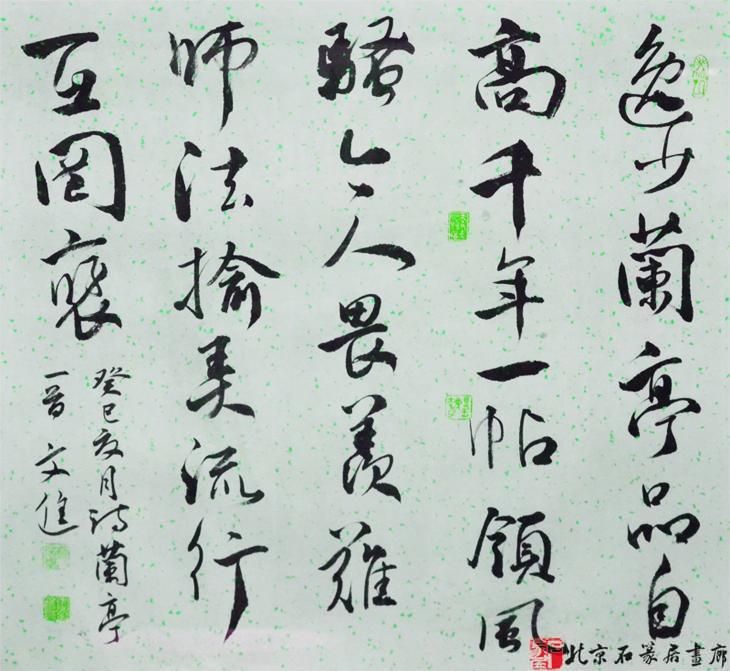 逸少蘭亭品自
高千年一帖領風
騷令人畏羨難
師法揄美流行
互罔褒
癸巳夏月詩蘭亭
一首文進
北京石篆居畫廊